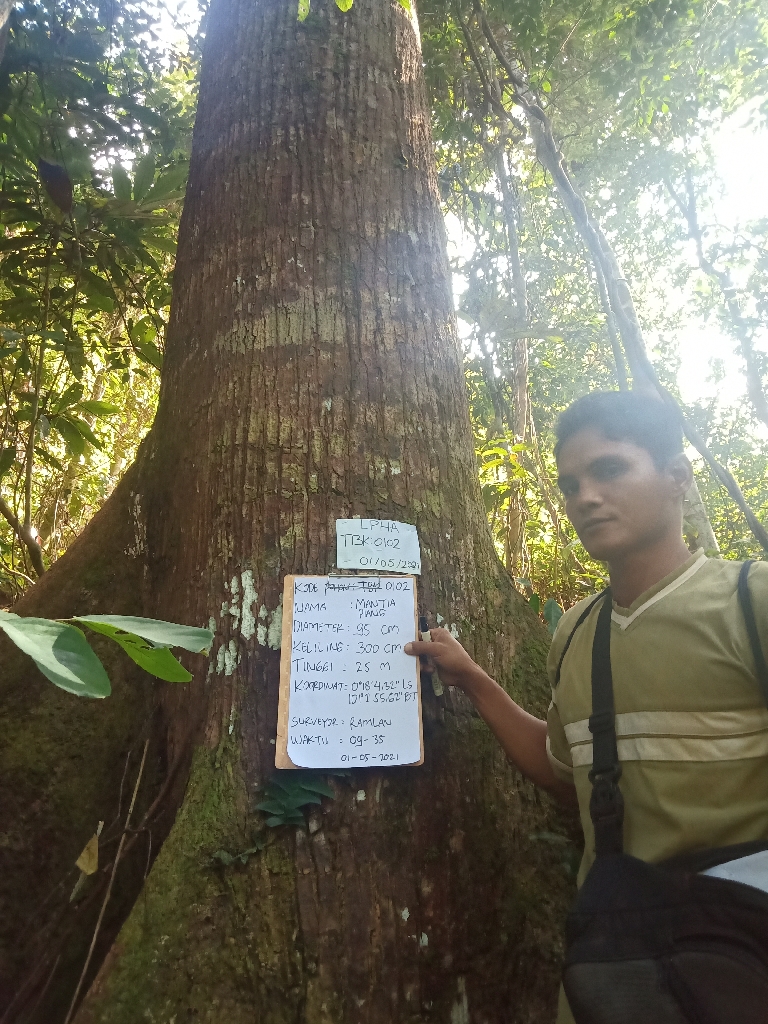 LP4A
TBK:0102
- 01/05/2021
KODE TBK 0102
NAMA : MANTIA
PIANG
DIAMETER : 95 CM
KELILING : 300 CM
TINGGI : 25 M
KOORDINAT : 0°18'4.32" LS
121°1'55.62" BT
SURVEYOR : RAMLAN
WAKTU : 09-35
01-05-2021